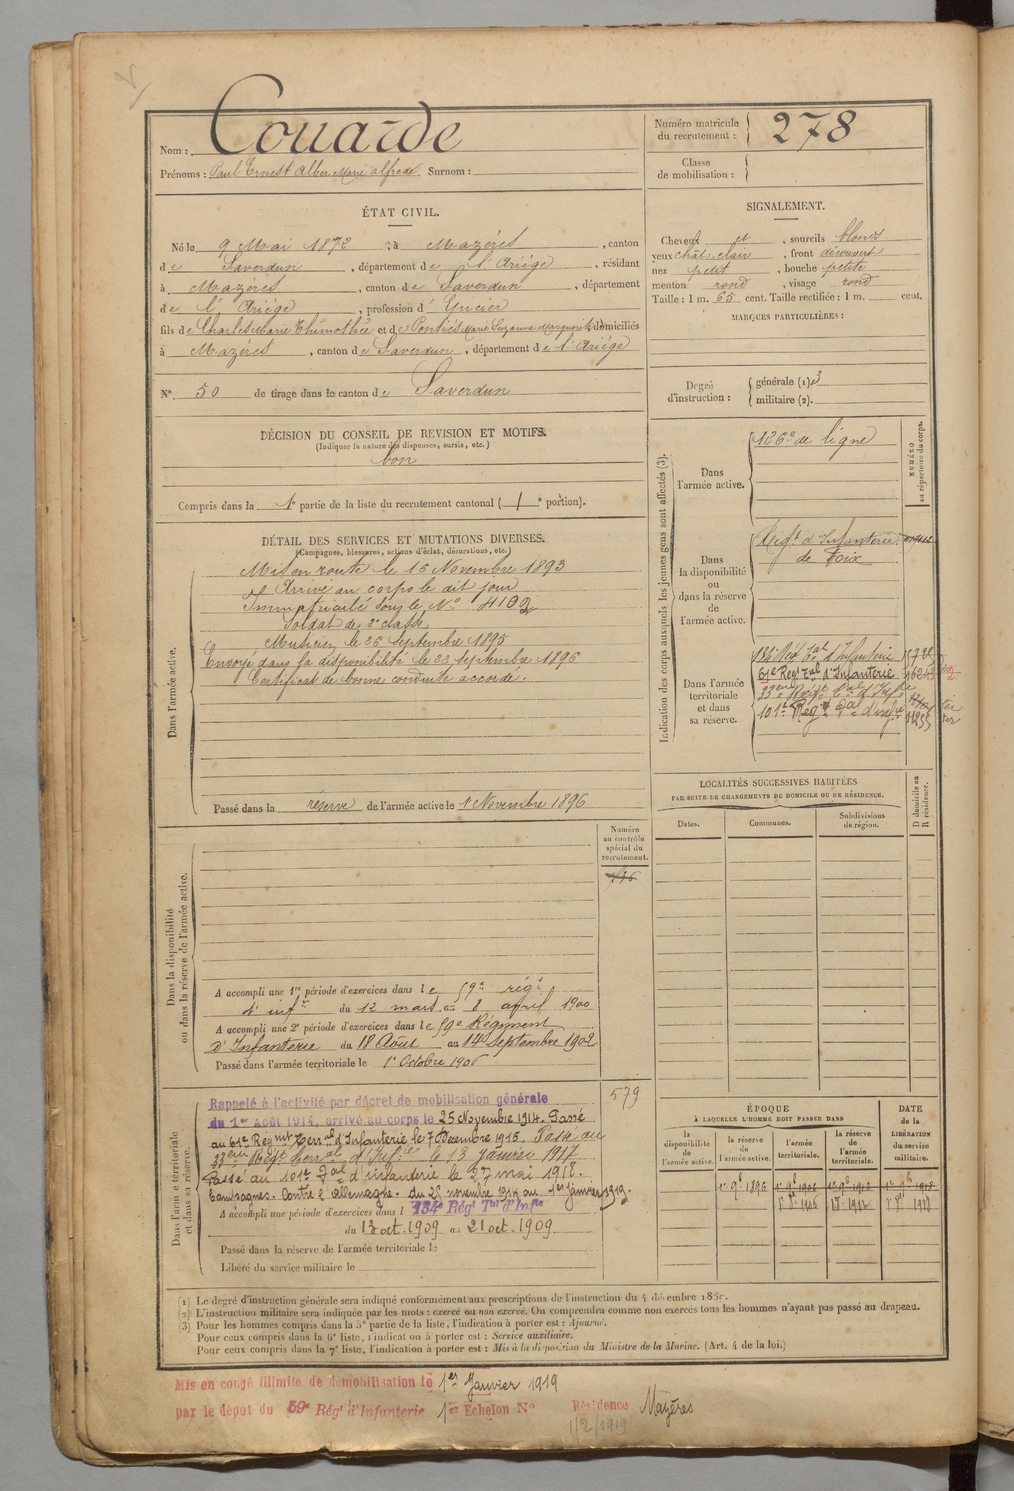 Nom : Couarde
Prénoms : Paul Ernest Alber Marie Alfred Surnom :
Numéro matricule du recrutement : 278
Classe de mobilisation :
ÉTAT CIVIL.
Né le 9 Mai 1872 à Mazéres, canton
de Saverdun, département de l'Ariége, résidant
à Mazéres, canton de Saverdun, département
de l'Ariége, profession d' Epicier
fils de Charles Marie Thimothée et de Pontiés Marie Suzanne Marguerite domiciliés
à Mazéres, canton de Saverdun, département de l'Ariége
N° 50 de tirage dans le canton de Saverdun
SIGNALEMENT.
Cheveux et sourcils blonds
yeux chât. clair, front découvert
nez petit, bouche petite
menton rond, visage rond
Taille : 1 m. 65 cent. Taille rectifiée : 1 m. cent.
MARQUES PARTICULIÈRES :
Degré d'instruction :
générale (1). 3
militaire (2).
DÉCISION DU CONSEIL DE REVISION ET MOTIFS.
(Indiquer la nature des dispenses, sursis, etc.)
bon
Compris dans la 1e partie de la liste du recrutement cantonal ( 1 e portion).
DÉTAIL DES SERVICES ET MUTATIONS DIVERSES.
(Campagnes, blessures, actions d'éclat, décorations, etc.)
Dans l'armée active.
Mis en route le 16 Novembre 1893
Arrivé au corps le dit jour
Immatriculé sous le N°
Soldat de 2e classe
Musicien le 26 Septembre 1895
Envoyé dans la disponibilité le 23 Septembre 1896
Certificat de bonne conduite accordé.
Passé dans la réserve de l'armée active le 1 Novembre 1896
Indication des corps auxquels les jeunes gens sont affectés (3).
NUMÉRO au répertoire du corps.
Dans l'armée active.
126e de ligne
Dans la disponibilité ou dans la réserve de l'armée active.
Régt d'Infanterie
de Foix
Dans l'armée territoriale et dans sa réserve.
134 Rég Tal d'Infanterie
61e Régt Tal d'Infanterie
33eme Rég Tal d'Infie
101e Rég Tal d'infie
LOCALITÉS SUCCESSIVES HABITÉES
PAR SUITE DE CHANGEMENTS DE DOMICILE OU DE RÉSIDENCE.
D domicile ou R résidence.
Dates. Communes. Subdivisions de région.
Numéro au contrôle spécial du recrutement.
Dans la disponibilité ou dans la réserve de l'armée active.
A accompli une 1re période d'exercices dans le 59e régt
d'infie du 12 mars au 8 avril 1900
A accompli une 2e période d'exercices dans le 59e Régiment
d'Infanterie du 18 Août au 14 Septembre 1902
Passé dans l'armée territoriale le 1e Octobre 1906
579
Dans l'armée territoriale et dans sa réserve.
Rappelé à l'activité par décret de mobilisation générale
du 1er Août 1914, arrivé au corps le 25 Novembre 1914. Passé
au 61e Régmnt Terral d'Infanterie le 7 Décembre 1915. Passé au
33eme Régt Terral d'Infie le 13 Janvier 1917
Passé au 101e Tal d'infanterie le 27 mai 1918.
Campagnes. Contre l'Allemagne. du 25 novembre 1914 au 1er Janvier 1919.
A accompli une période d'exercices dans l 134e Régt Tal d'Infie
du 13 oct. 1909 au 21 oct. 1909
Passé dans la réserve de l'armée territoriale le
Libéré du service militaire le
ÉPOQUE
À LAQUELLE L'HOMME DOIT PASSER DANS
la disponibilité de l'armée active. la réserve de l'armée active. l'armée territoriale. la réserve de l'armée territoriale.
DATE de la LIBÉRATION du service militaire.
1e 9b 1896 1e 9b 1906 1e 9b 1912 1e 9b 1918
1e 8b 1906 1e 8b 1912 1e 8b 1918
(1) Le degré d'instruction générale sera indiqué conformément aux prescriptions de l'instruction du 4 décembre 1889.
(2) L'instruction militaire sera indiquée par les mots : exercé ou non exercé. On comprendra comme non exercés tous les hommes n'ayant pas passé au drapeau.
(3) Pour les hommes compris dans la 5e partie de la liste, l'indication à porter est : Ajourné.
Pour ceux compris dans la 6e liste, l'indication à porter est : Service auxiliaire.
Pour ceux compris dans la 7e liste, l'indication à porter est : Mis à la disposition du Ministre de la Marine. (Art. 4 de la loi.)
Mis en congé illimité de démobilisation le 1er Janvier 1919
par le dépôt du 59e Régt d'Infanterie 1er Echelon N° Résidence Mazères
1/2/1919